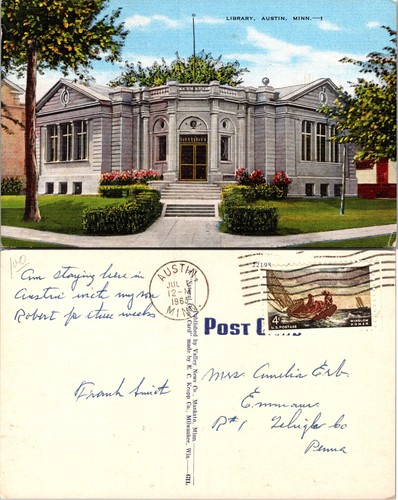 LIBRARY, AUSTIN, MINN.—1
Am staying here in
Austin with my son
Robert for three weeks
Frank Smith
AUSTIN
JUL
12-M
1963
MINN.
22195
4¢
U.S. POSTAGE
WINSLOW
HOMER
POST CARD
Published by Valley News Co., Mankato, Minn.
made by E. C. Kropp Co., Milwaukee, Wis.
Mrs. Amelia Erb.
Emmaus
R#1 Lehigh Co
Penna